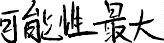 可能性最大